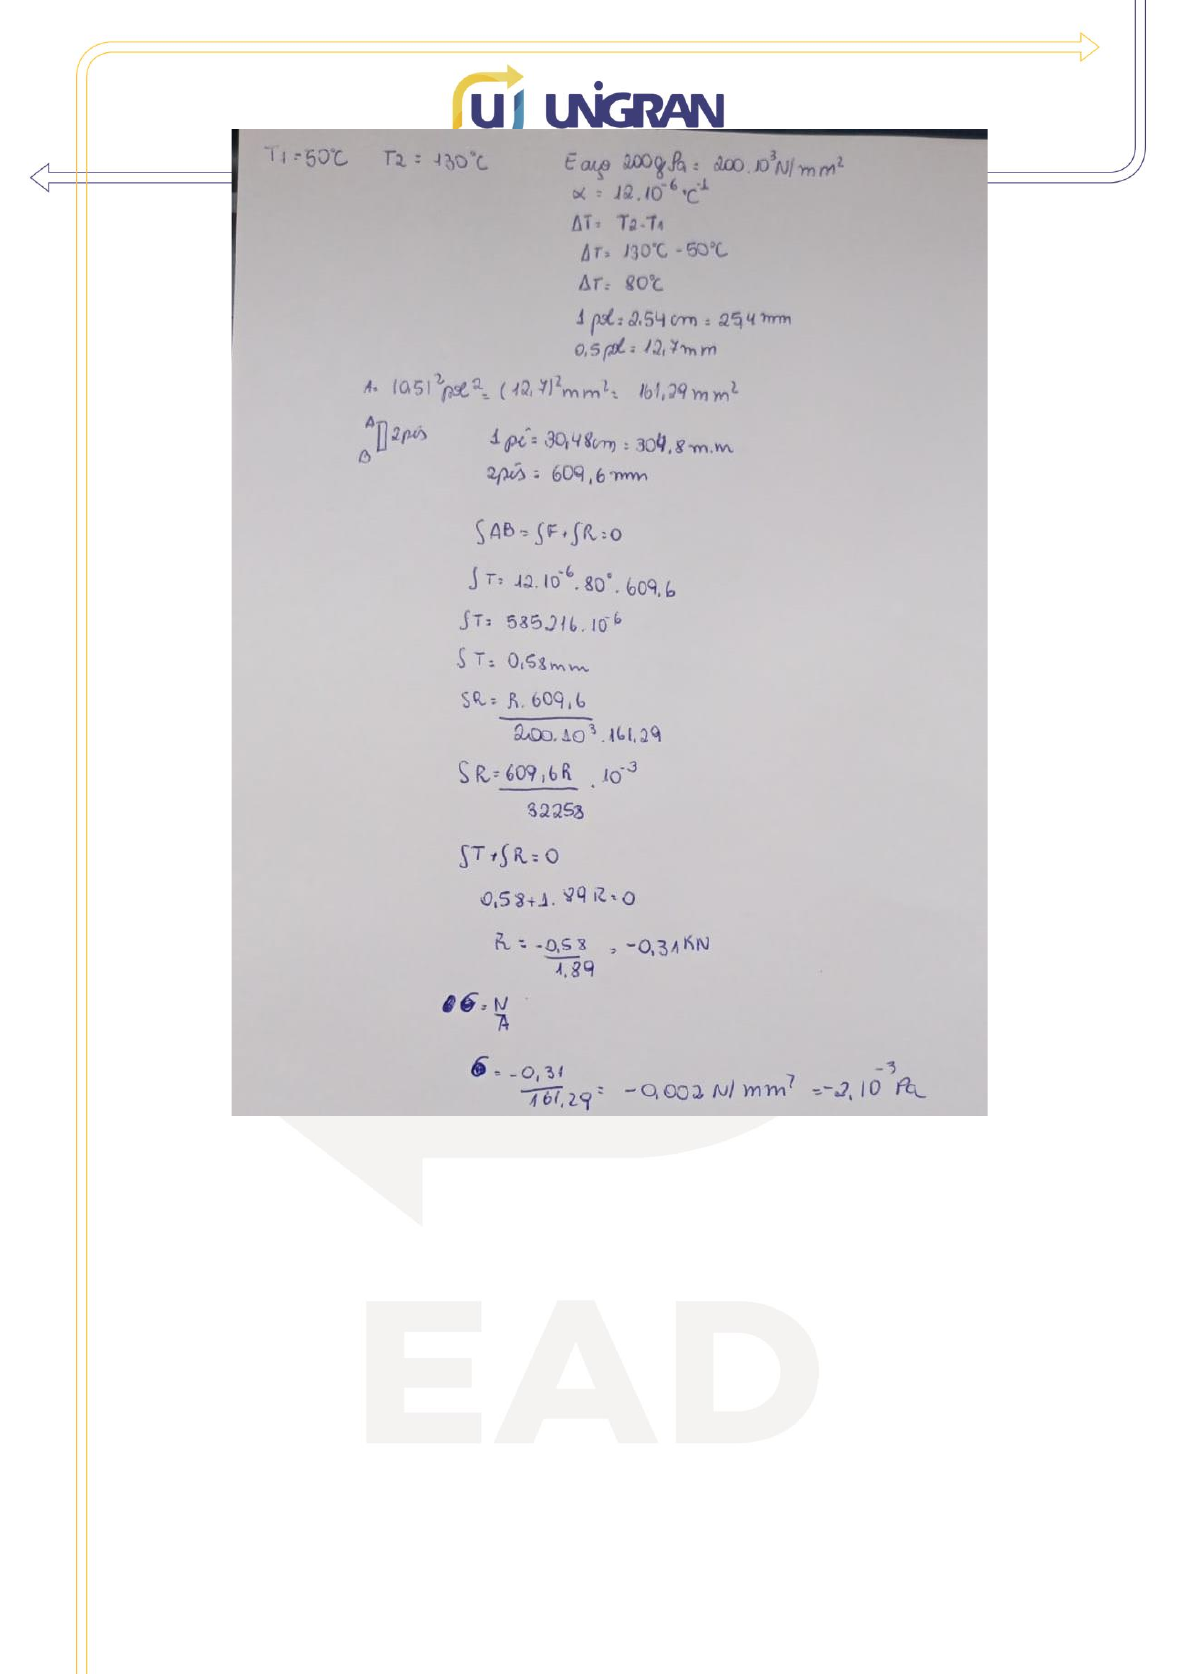 UNIGRAN
T1 = 50°C T2 = 130°C E aço 200gPa = 200.10³N/mm²
α = 12.10⁻⁶ °C⁻¹
ΔT = T2-T1
ΔT = 130°C - 50°C
ΔT = 80°C
1 pol = 2.54 cm = 25,4 mm
0,5 pol = 12,7 mm
A = (0,5)² pol² = (12,7)² mm² = 161,29 mm²
A
B
2 pés
1 pé = 30,48cm = 304,8 m.m
2 pés = 609,6 mm
∫AB = ∫F + ∫R = 0
∫T = 12.10⁻⁶.80°.609.6
∫T = 585216.10⁻⁶
∫T = 0,58mm
SR = R.609,6
200.10³.161,29
SR = 609,6R . 10⁻³
32258
∫T + ∫R = 0
0,58 + 1.89 R = 0
R = -0,58 = -0,31 KN
1,89
σ = N
A
σ = -0,31
161,29 = -0,002 N/mm² = -2.10⁻³ Pa
EAD